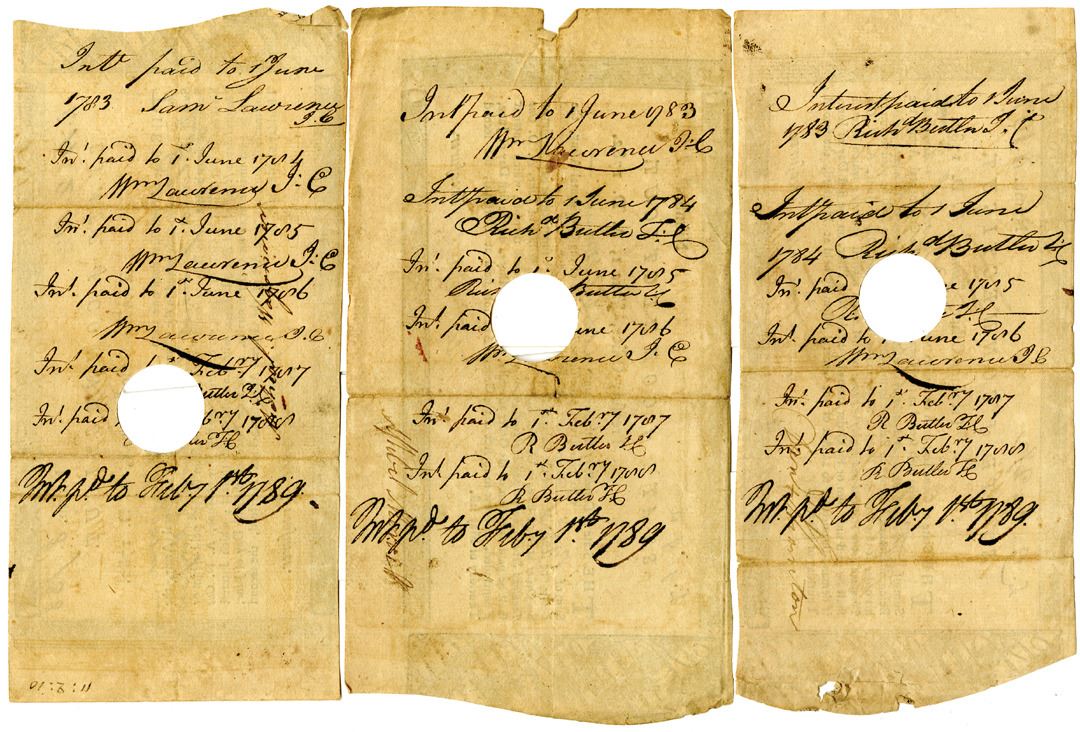 Intt. paid to 1st June
1783 Saml Lawrence
I.C
Int. paid to 1st. June 1784
Wm Lawrence I.C
Int. paid to 1st. June 1785
Wm Lawrence I.C
Int. paid to 1st. June 1786
Wm Lawrence I.C
Int. paid Febry 1787
Butler I.C
Int. paid bry 1788
I.C
Int. pd. to Feby 1st. 1789.
11:2:10
Int paid to 1 June 1783
Wm Lawrence I.C
Int paid to 1 June 1784
Richd Butler I.C
Int. paid to 1st. June 1785
Butler I.C
Int. paid une 1786
Wm Lawrence I.C
Int. paid to 1st. Feb.ry 1787
R Butler I.C
Int. paid to 1st. Feb.ry 1788
R Butler I.C
Int. pd. to Feby 1st 1789
Interest paid to 1 June
1783 Richd Butler I.C
Int paid to 1 June
1784 Richd Butler I.C
Int. paid 1785
I.C
Int. paid to une 1786
Wm Lawrence I.C
Int. paid to 1st. Feb.ry 1787
R Butler I.C
Int. paid to 1st. Feb.ry 1788
R Butler I.C
Int. pd. to Feby 1st. 1789.